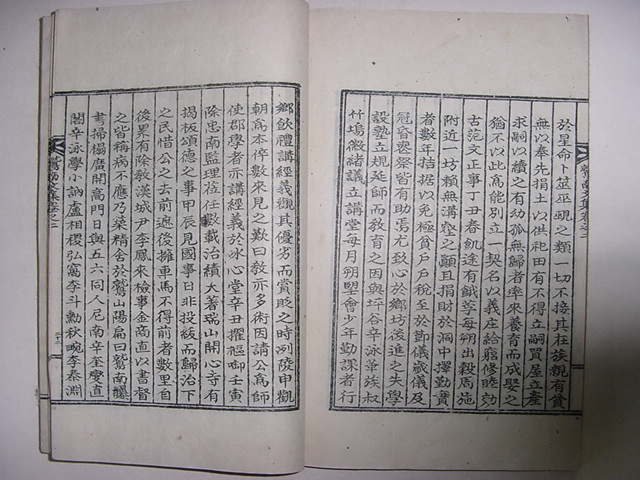 於星命卜筮巫覡之類一切不接其在族親有貧
無以奉先捐土以供祀田有不得立嗣買屋立產
求嗣以續之有幼孤無歸者率來養育而成娶之
猶不以此爲能別立一契名以義庄給窮修睦効
古范文正事丁丑春飢途有餓莩每朔出穀周施
附近一坊賴無溝壑之顚且捐財於洞中擇勤實
者數年拮据以免極貧戶戶稅至於鄒儀葳儀及
冠昏喪祭皆有助焉尤致心於鄉坊後進之失學
設塾立規延師而敎育之因與坪谷辛泳筆族叔
竹塢微緖議立講堂每月朔盟會少年勤課者行
鄕飮禮講經義觀其優劣而賞貶之時冽陵申觀
朝爲本倅數來見之歎曰敎亦多術因請公爲師
使郡學者亦講經義於冰心堂辛丑擢樞啣壬寅
除忠南監理莅任數載治績大著瑞山開心寺有
揭板頌德之事甲辰見國事日非投紱而歸治下
之民惜公之去前遮後擁車馬不得前者數里自
後累有除敎漢城尹李鳳來檢事金商直以書督
之皆稱病不應乃築精舍於鷲山陽扁曰鷲南疆
書掃楊廣開高門日與五六同人尼南辛至燮直
閣辛泳學小訥盧相稷弘窩李斗勳秋畹李泰淵